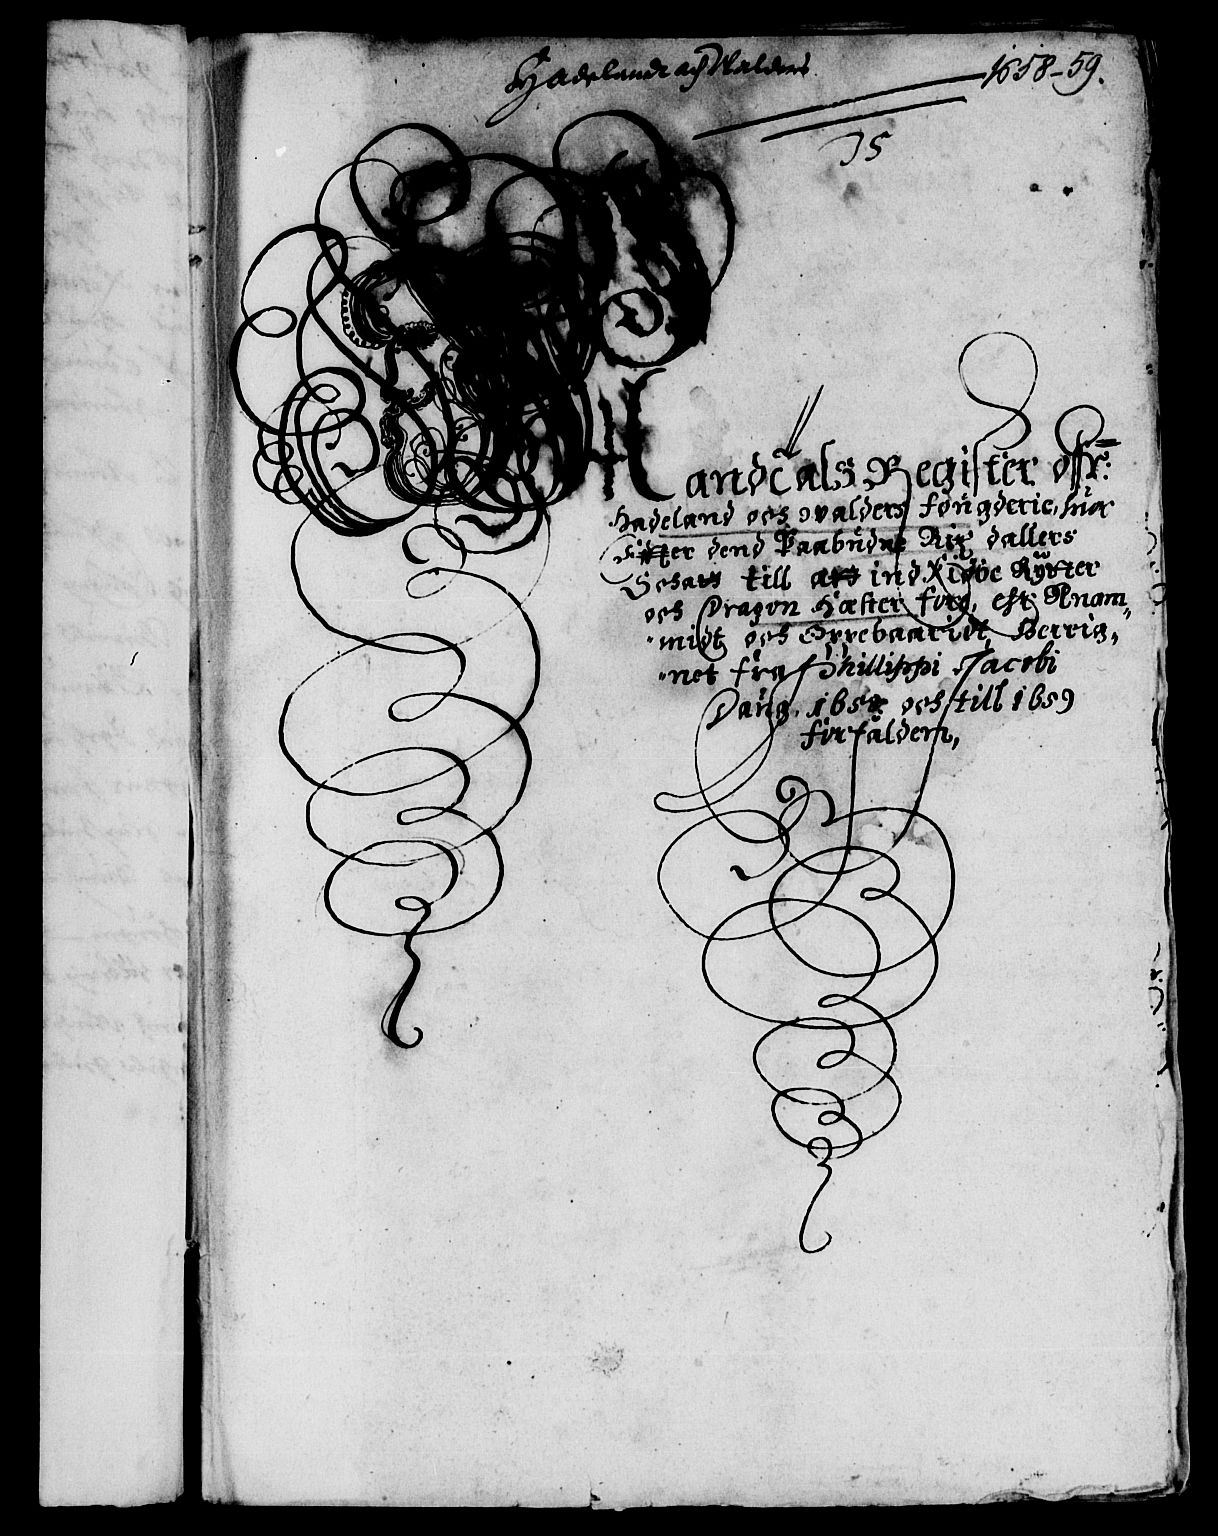 Hadelandt och Walders 1658-59.
15
Mandtals Register offr:
Hadeland och Walders fougderie, huor
Efter dend Paabudne Rix dallers
Schatt till att indkiöbe Rÿtter
och Dragon Hæster fore, ehr Anam„
„midt och Oppebaaridt, Berrig„
„net fra Phillippi Jacobi
Daug. 1658 och till 1659
forfaldern,